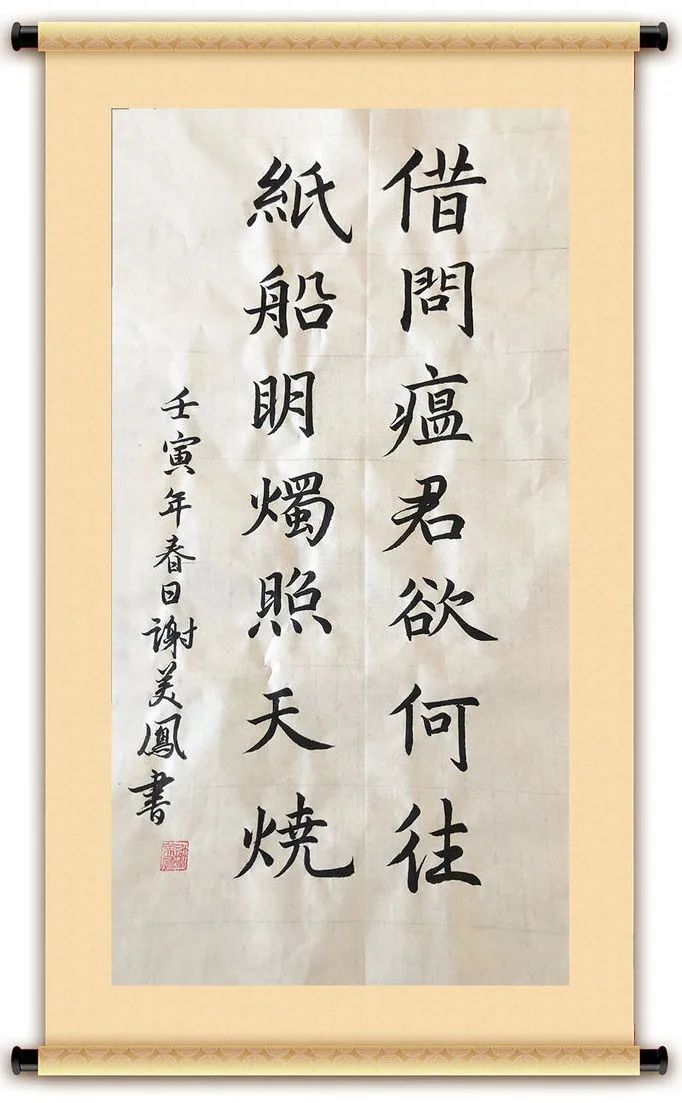 借問瘟君欲何往
紙船明燭照天燒
壬寅年春日謝美鳳書